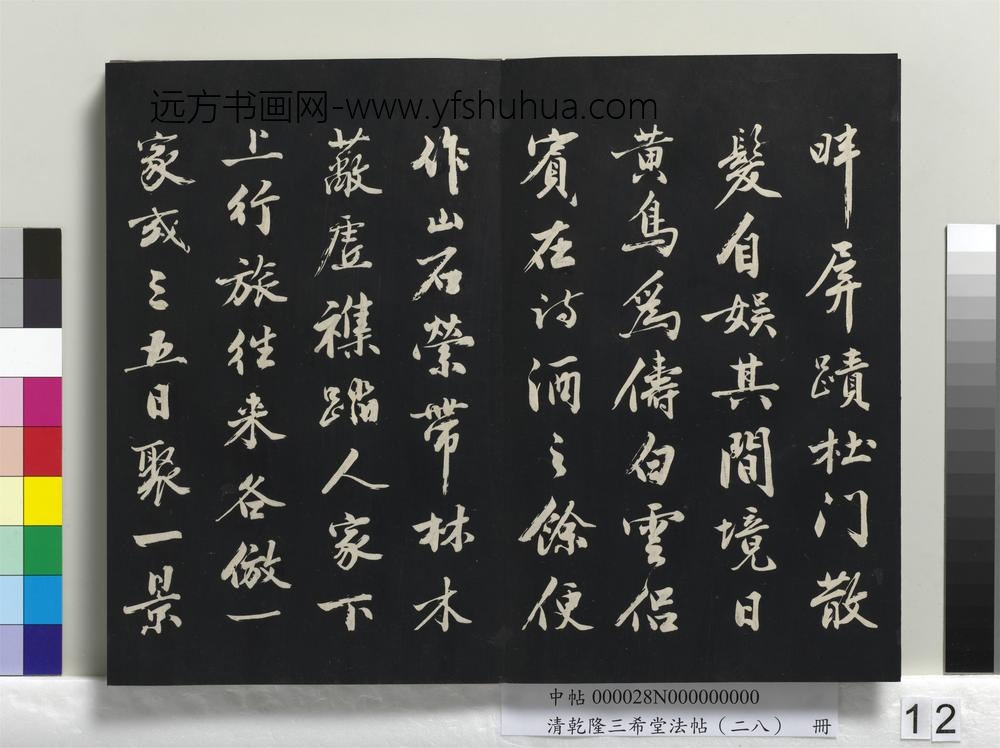 远方书画网-www.yfshuhua.com
畔屏蹟杜门散
髮自娱其間境日
黄鳥為儔白雲侣
賓在诗酒之餘便
作山石縈带林木
蔽虚襍踏人家下
上行旅往来各倣一
家或三五日聚一景
中帖 000028N000000000
清乾隆三希堂法帖（二八） 冊
12